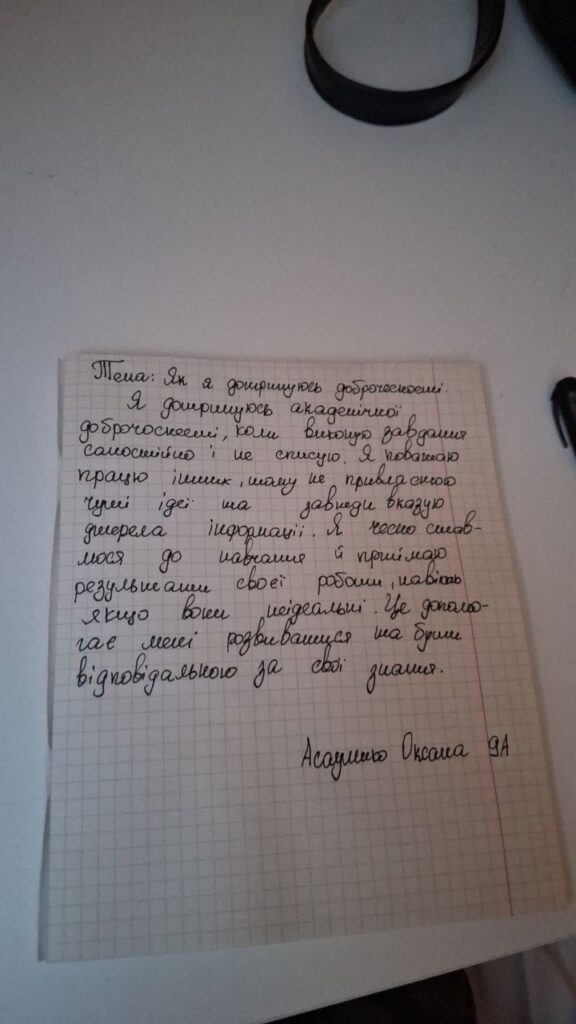 Тема: Як я дотримуюсь доброчесності.
Я дотримуюсь академічної
доброчесності, коли виконую завдання
самостійно і не списую. Я поважаю
працю інших, тому не привласнюю
чужі ідеї та завжди вказую
джерела інформації. Я чесно став-
люся до навчання й приймаю
результати своєї роботи, навіть
якщо вони неідеальні. Це допома-
гає мені розвиватися та бути
відповідальною за свої знання.
Асауленко Оксана 9А